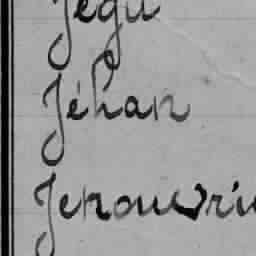 Jégu
Jéhan
Jenouvrie